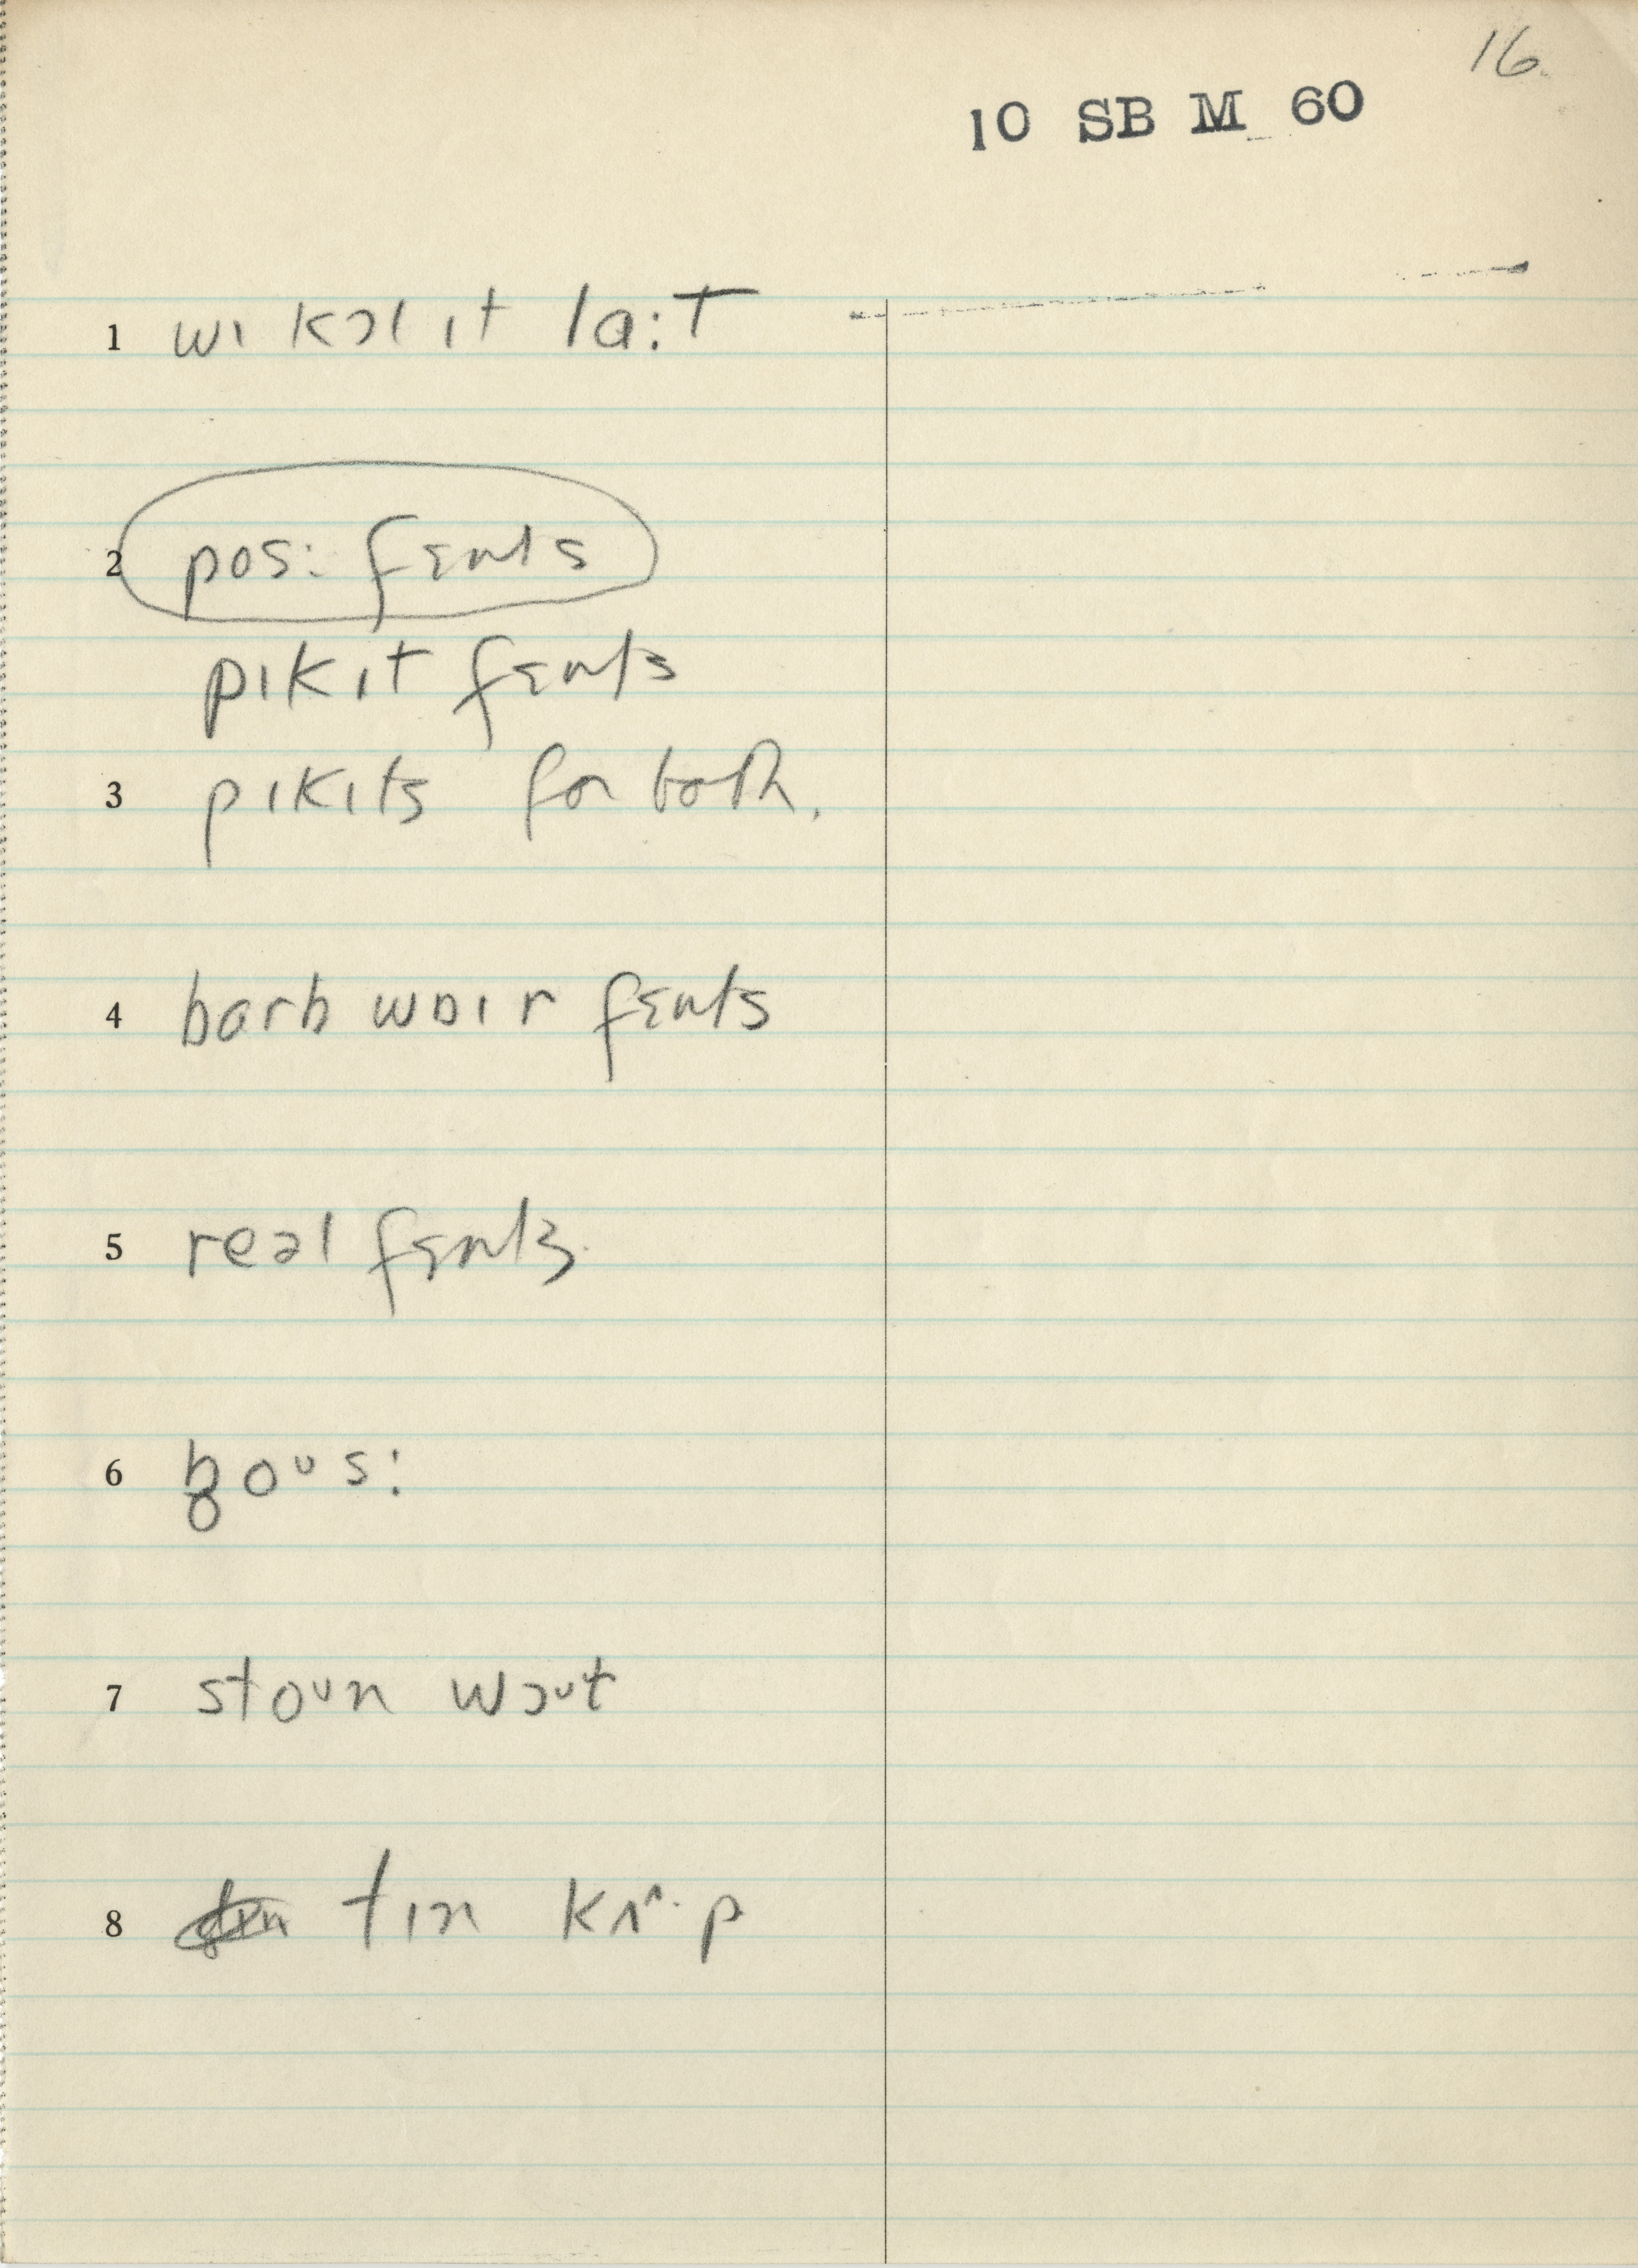 16.
10 SB M 60
1 wɪ kɔl ɪt la:t
2 pos: fɛnts
pɪkɪt fɛnts
3 pɪkɪts for both.
4 barb wɒɪr fɛnts
5 reəl fɛnts
6 b̥oᵘs:
7 stoᵘn wɔᵘt
8 tɪn